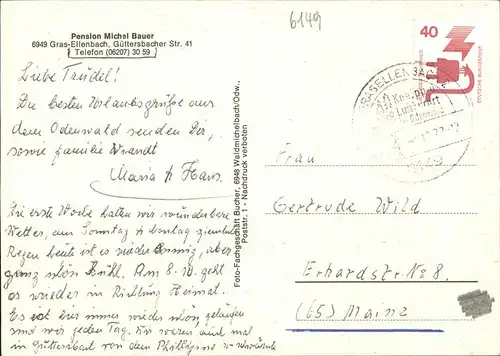 6149
Pension Michel Bauer
6949 Gras-Ellenbach, Güttersbacher Str. 41
Telefon (06207) 30 59
Liebe Trudel!
Die besten Urlaubsgrüße aus
dem Odenwald senden Dir,
sowie Familie
Maria & Hans.
Die erste Woche hatten wir wunderbar
Wetter, am Sonntag & Montag ziemlich
Regen heute ist es wieder sonnig, aber
ganz schön kühl. Am 8. 10. geht
es wieder in Richtung Heimat.
Es ist hier immer wieder schön gelaufen
sind wir jeden Tag. Wir waren auch mal
in Güttersbach von dem
Foto-Fachgeschäft Bucher, 6948 Waldmichelbach/Odw.,
Poststr. 1 - Nachdruck verboten
40
DEUTSCHE BUNDESPOST
GRASELLENBACH
Odenwald
Frau
Gertrude Wild
Erhardstr. No 8.
(65) Mainz